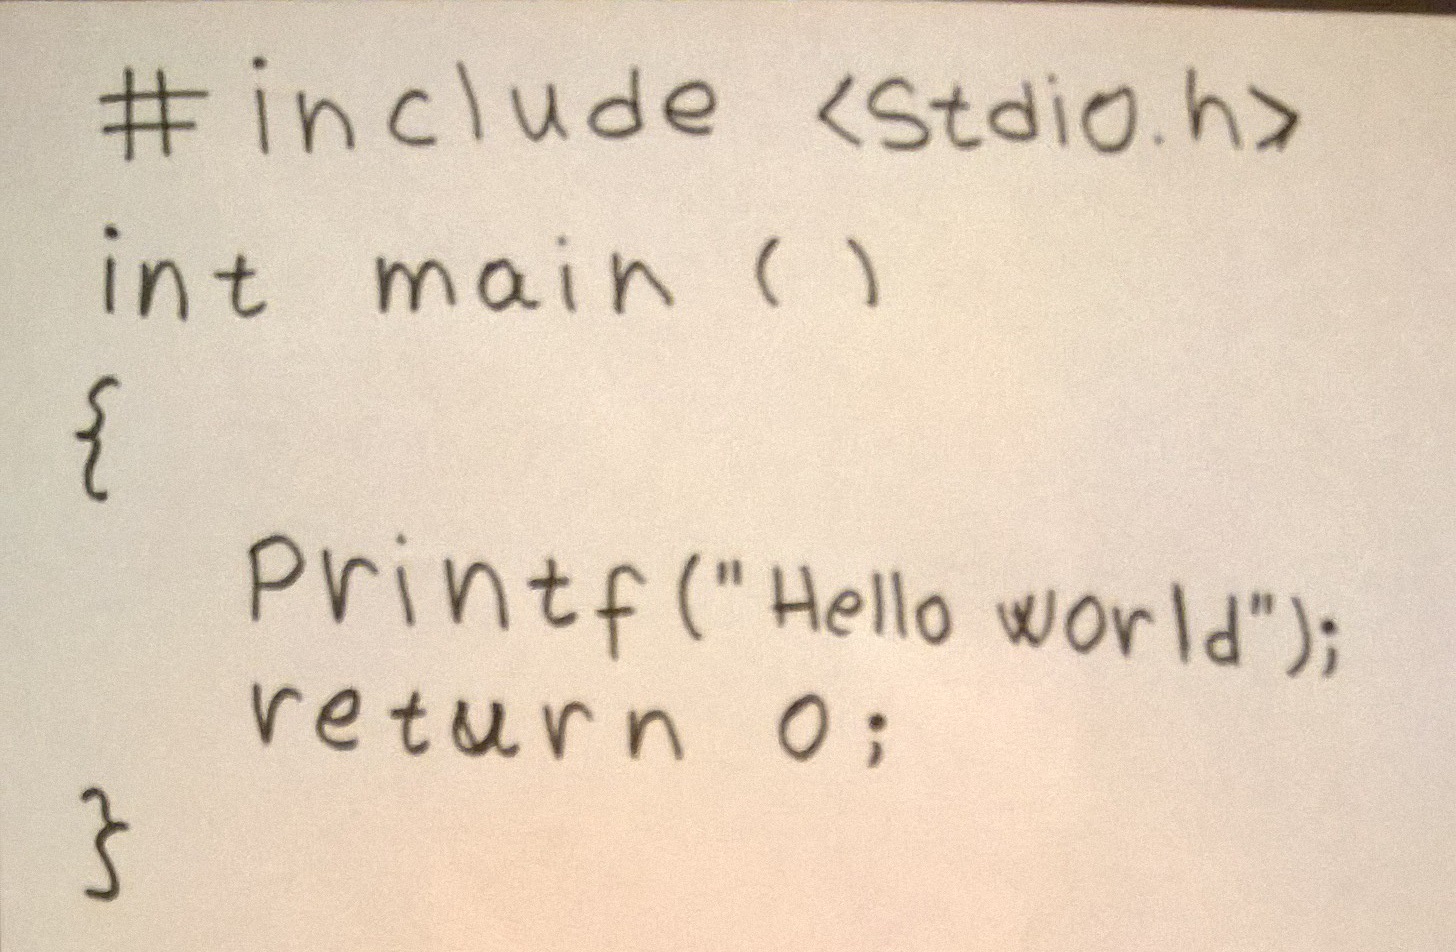 #include <stdio.h>
int main ()
{
printf("Hello world");
return 0;
}